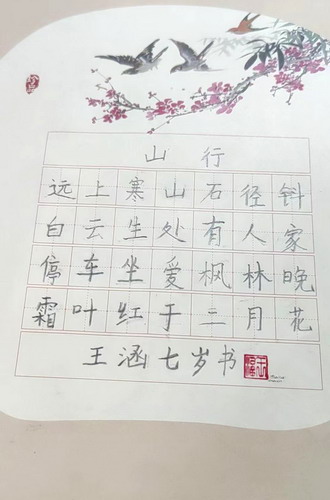 山行
远上寒山石径斜
白云生处有人家
停车坐爱枫林晚
霜叶红于二月花
王涵七岁书